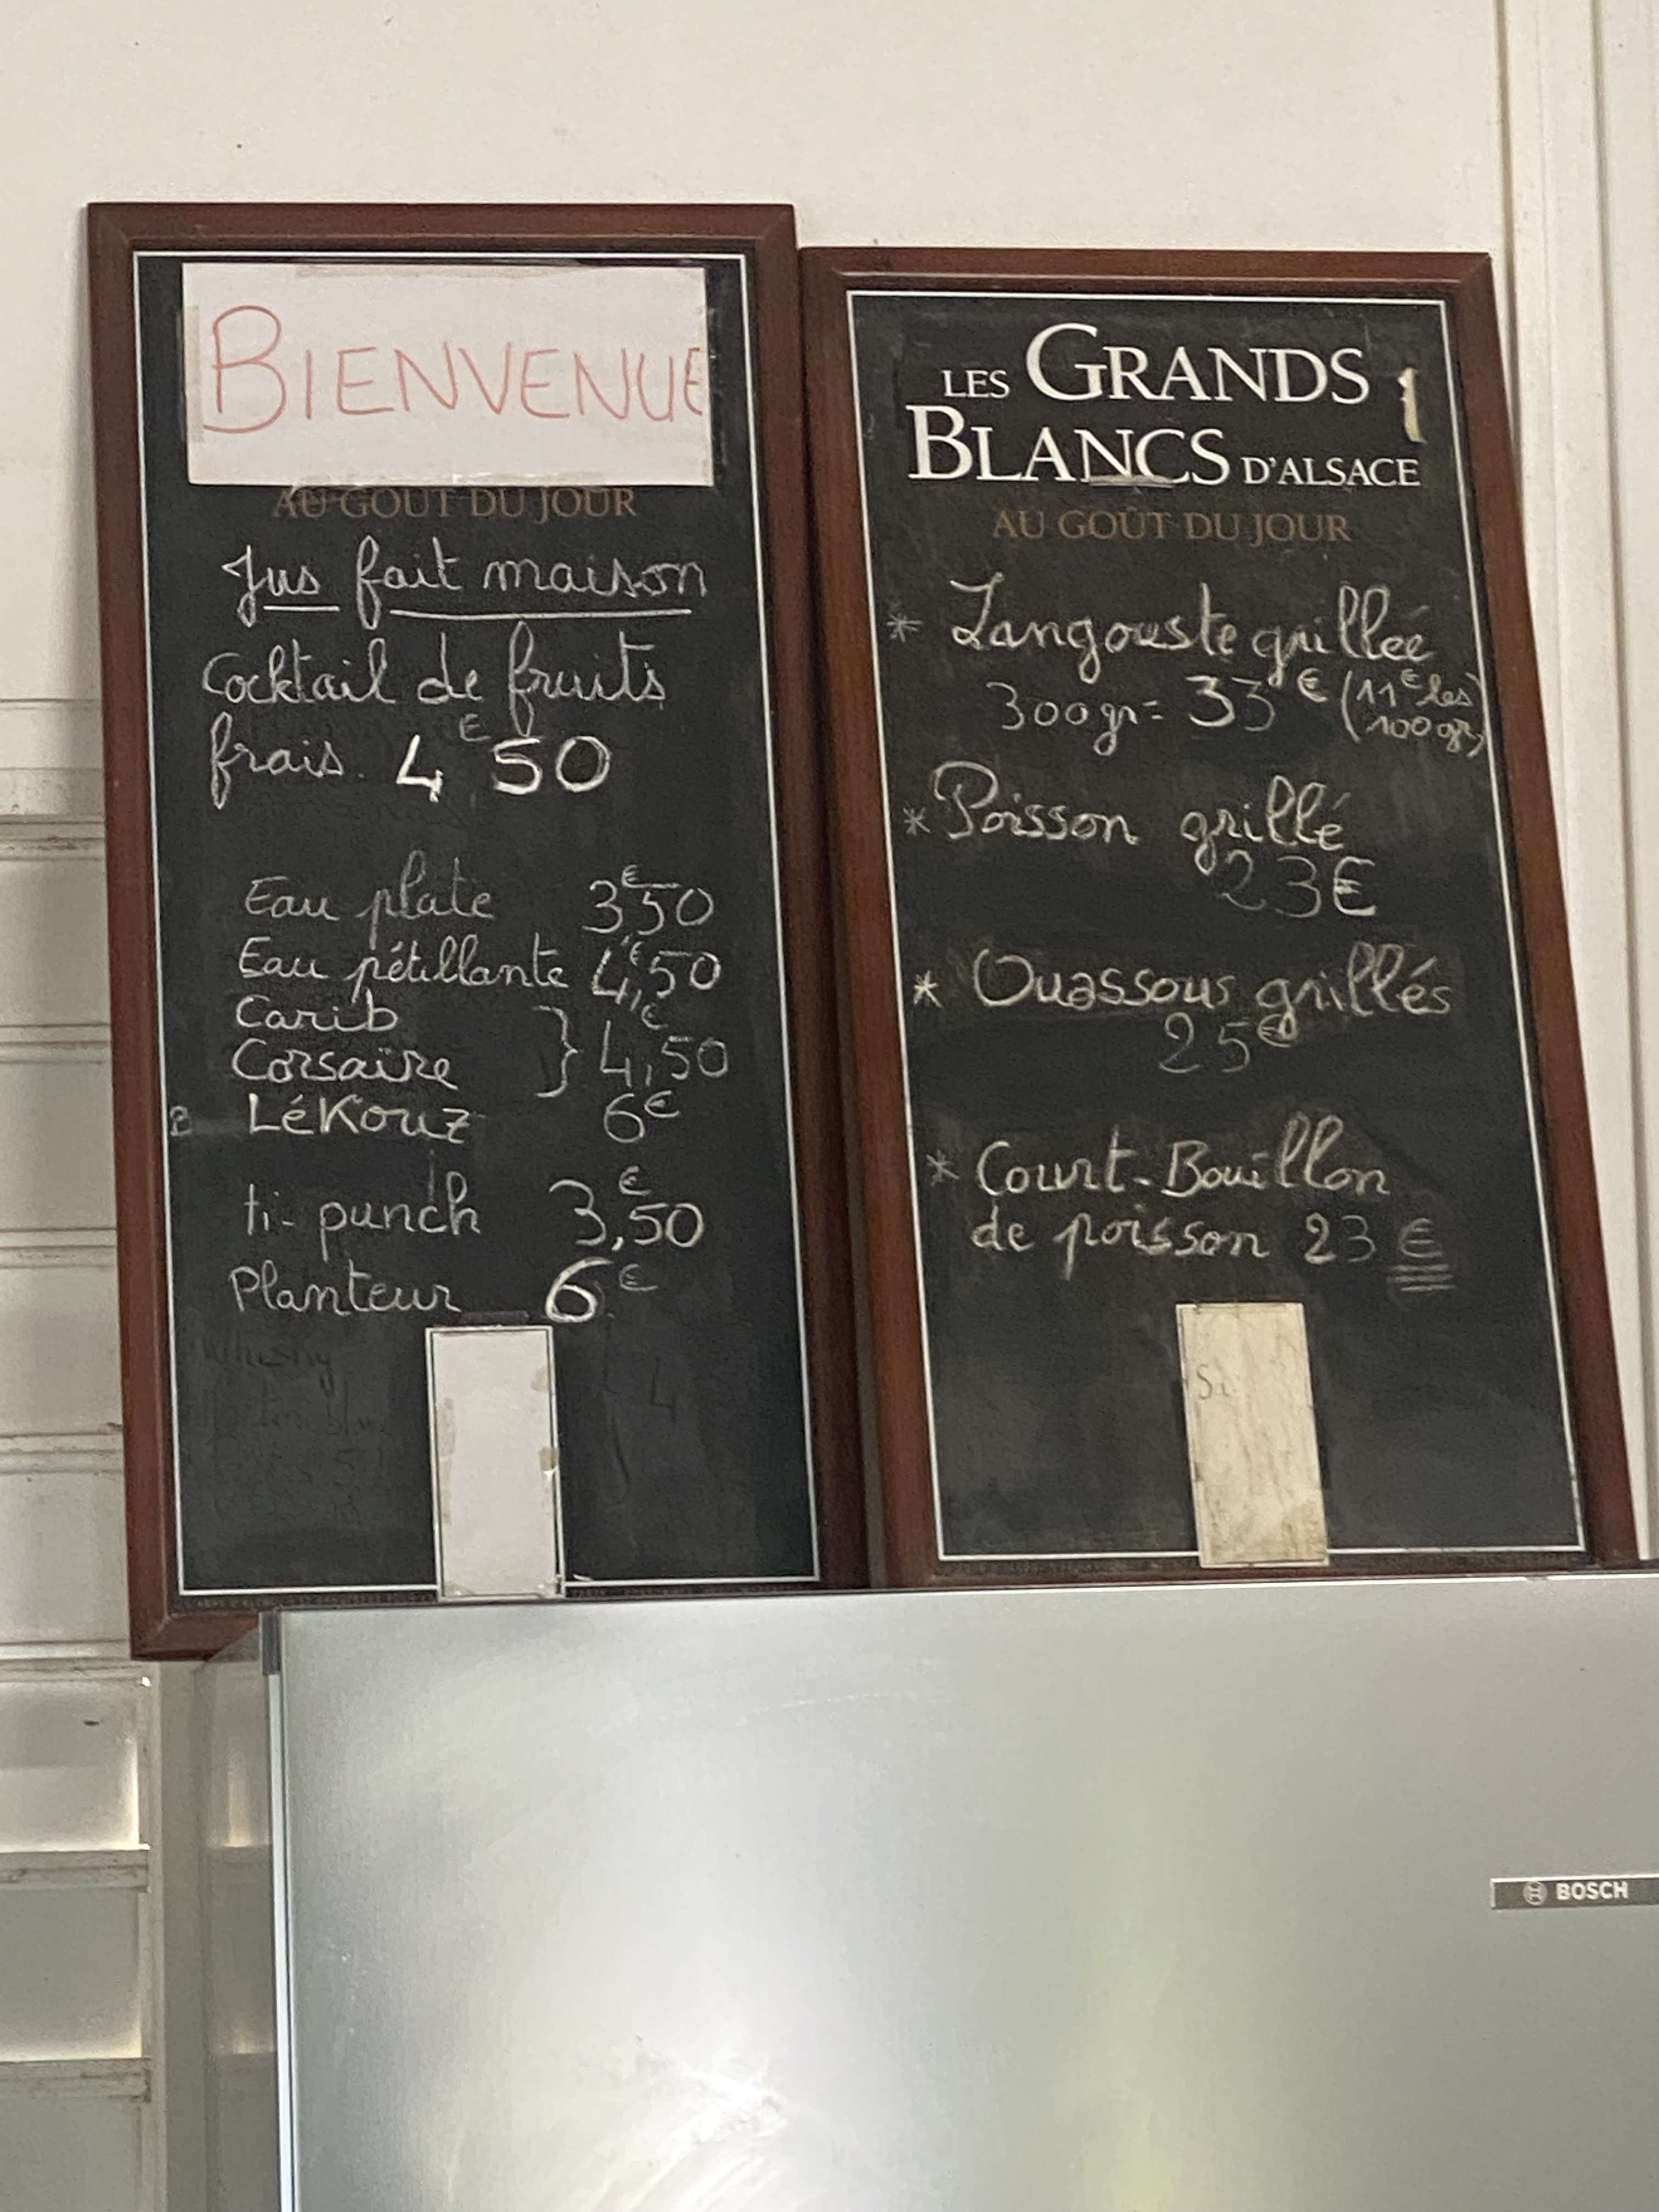 BIENVENUE
AU GOÛT DU JOUR
Jus fait maison
Cocktail de fruits
frais. 4€50
Eau plate 3€50
Eau pétillante 4€,50
Carib
Corsaire } 4,€50
LéKouz 6€
ti-punch 3,€50
Planteur 6€
LES GRANDS
BLANCS D'ALSACE
AU GOÛT DU JOUR
* Langouste grillée
300gr = 33€ (11€ les
100gr)
* Poisson grillé
23€
* Ouassous grillés
25€
* Court-Bouillon
de poisson 23€
BOSCH